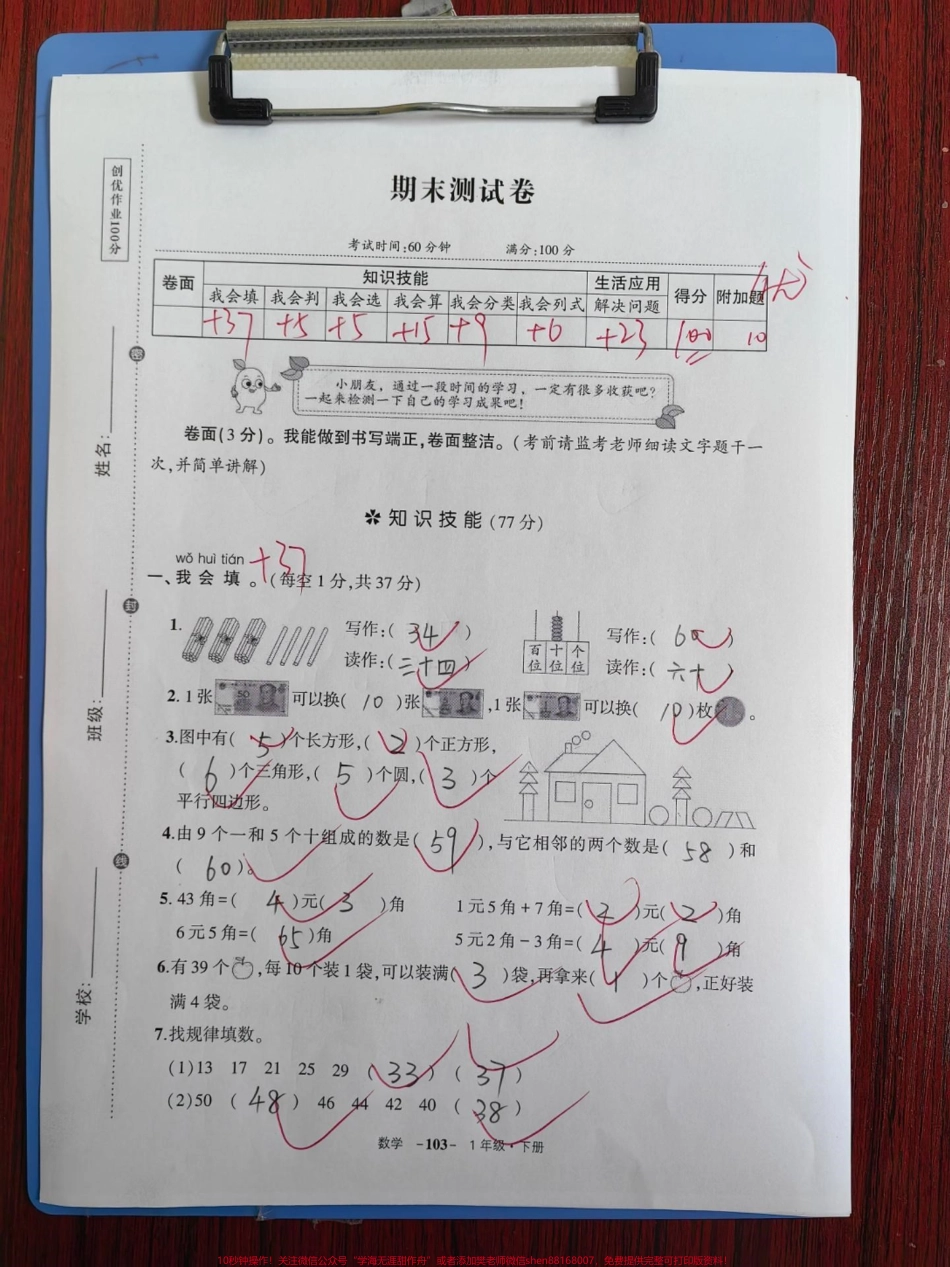 期末测试卷
考试时间:60分钟 满分:100分
创优作业100分
卷面 知识技能 生活应用 得分 附加题
我会填 我会判 我会选 我会算 我会分类 我会列式 解决问题
+37 +5 +5 +15 +9 +6 +23 100 10
小朋友，通过一段时间的学习，一定有很多收获吧？
一起来检测一下自己的学习成果吧！
卷面(3分)。我能做到书写端正,卷面整洁。(考前请监考老师细读文字题干一
次,并简单讲解)
知识技能(77分)
wǒ huì tián +37
一、我会填。(每空1分,共37分)
1. 写作:( 34 ) 百位 十位 个位 写作:( 60 )
读作:(三十四) 读作:( 六十 )
2. 1张 50 可以换( 10 )张 ,1张 1 可以换( 10 )枚 。
3.图中有( 5 )个长方形,( 2 )个正方形,
( 6 )个三角形,( 5 )个圆,( 3 )个
平行四边形。
4.由9个一和5个十组成的数是( 59 ),与它相邻的两个数是( 58 )和
( 60 )。
5. 43角=( 4 )元( 3 )角 1元5角+7角=( 2 )元( 2 )角
6元5角=( 65 )角 5元2角-3角=( 4 )元( 9 )角
6.有39个 ,每10个装1袋,可以装满( 3 )袋,再拿来( 1 )个 ,正好装
满4袋。
7.找规律填数。
(1)13 17 21 25 29 ( 33 ) ( 37 )
(2)50 ( 48 ) 46 44 42 40 ( 38 )
数学 -103- 1年级·下册
姓名:
班级:
学校:
密
封
线
10秒钟操作！关注微信公众号“学海无涯甜作舟”或者添加樊老师微信shen88168007，免费提供完整可打印版资料！